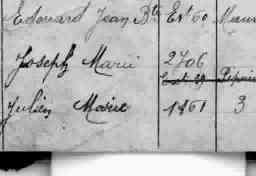 Edouard Jean Bte Ext 60 Mau
Joseph Marie 2706
Julien Marie 1861 3